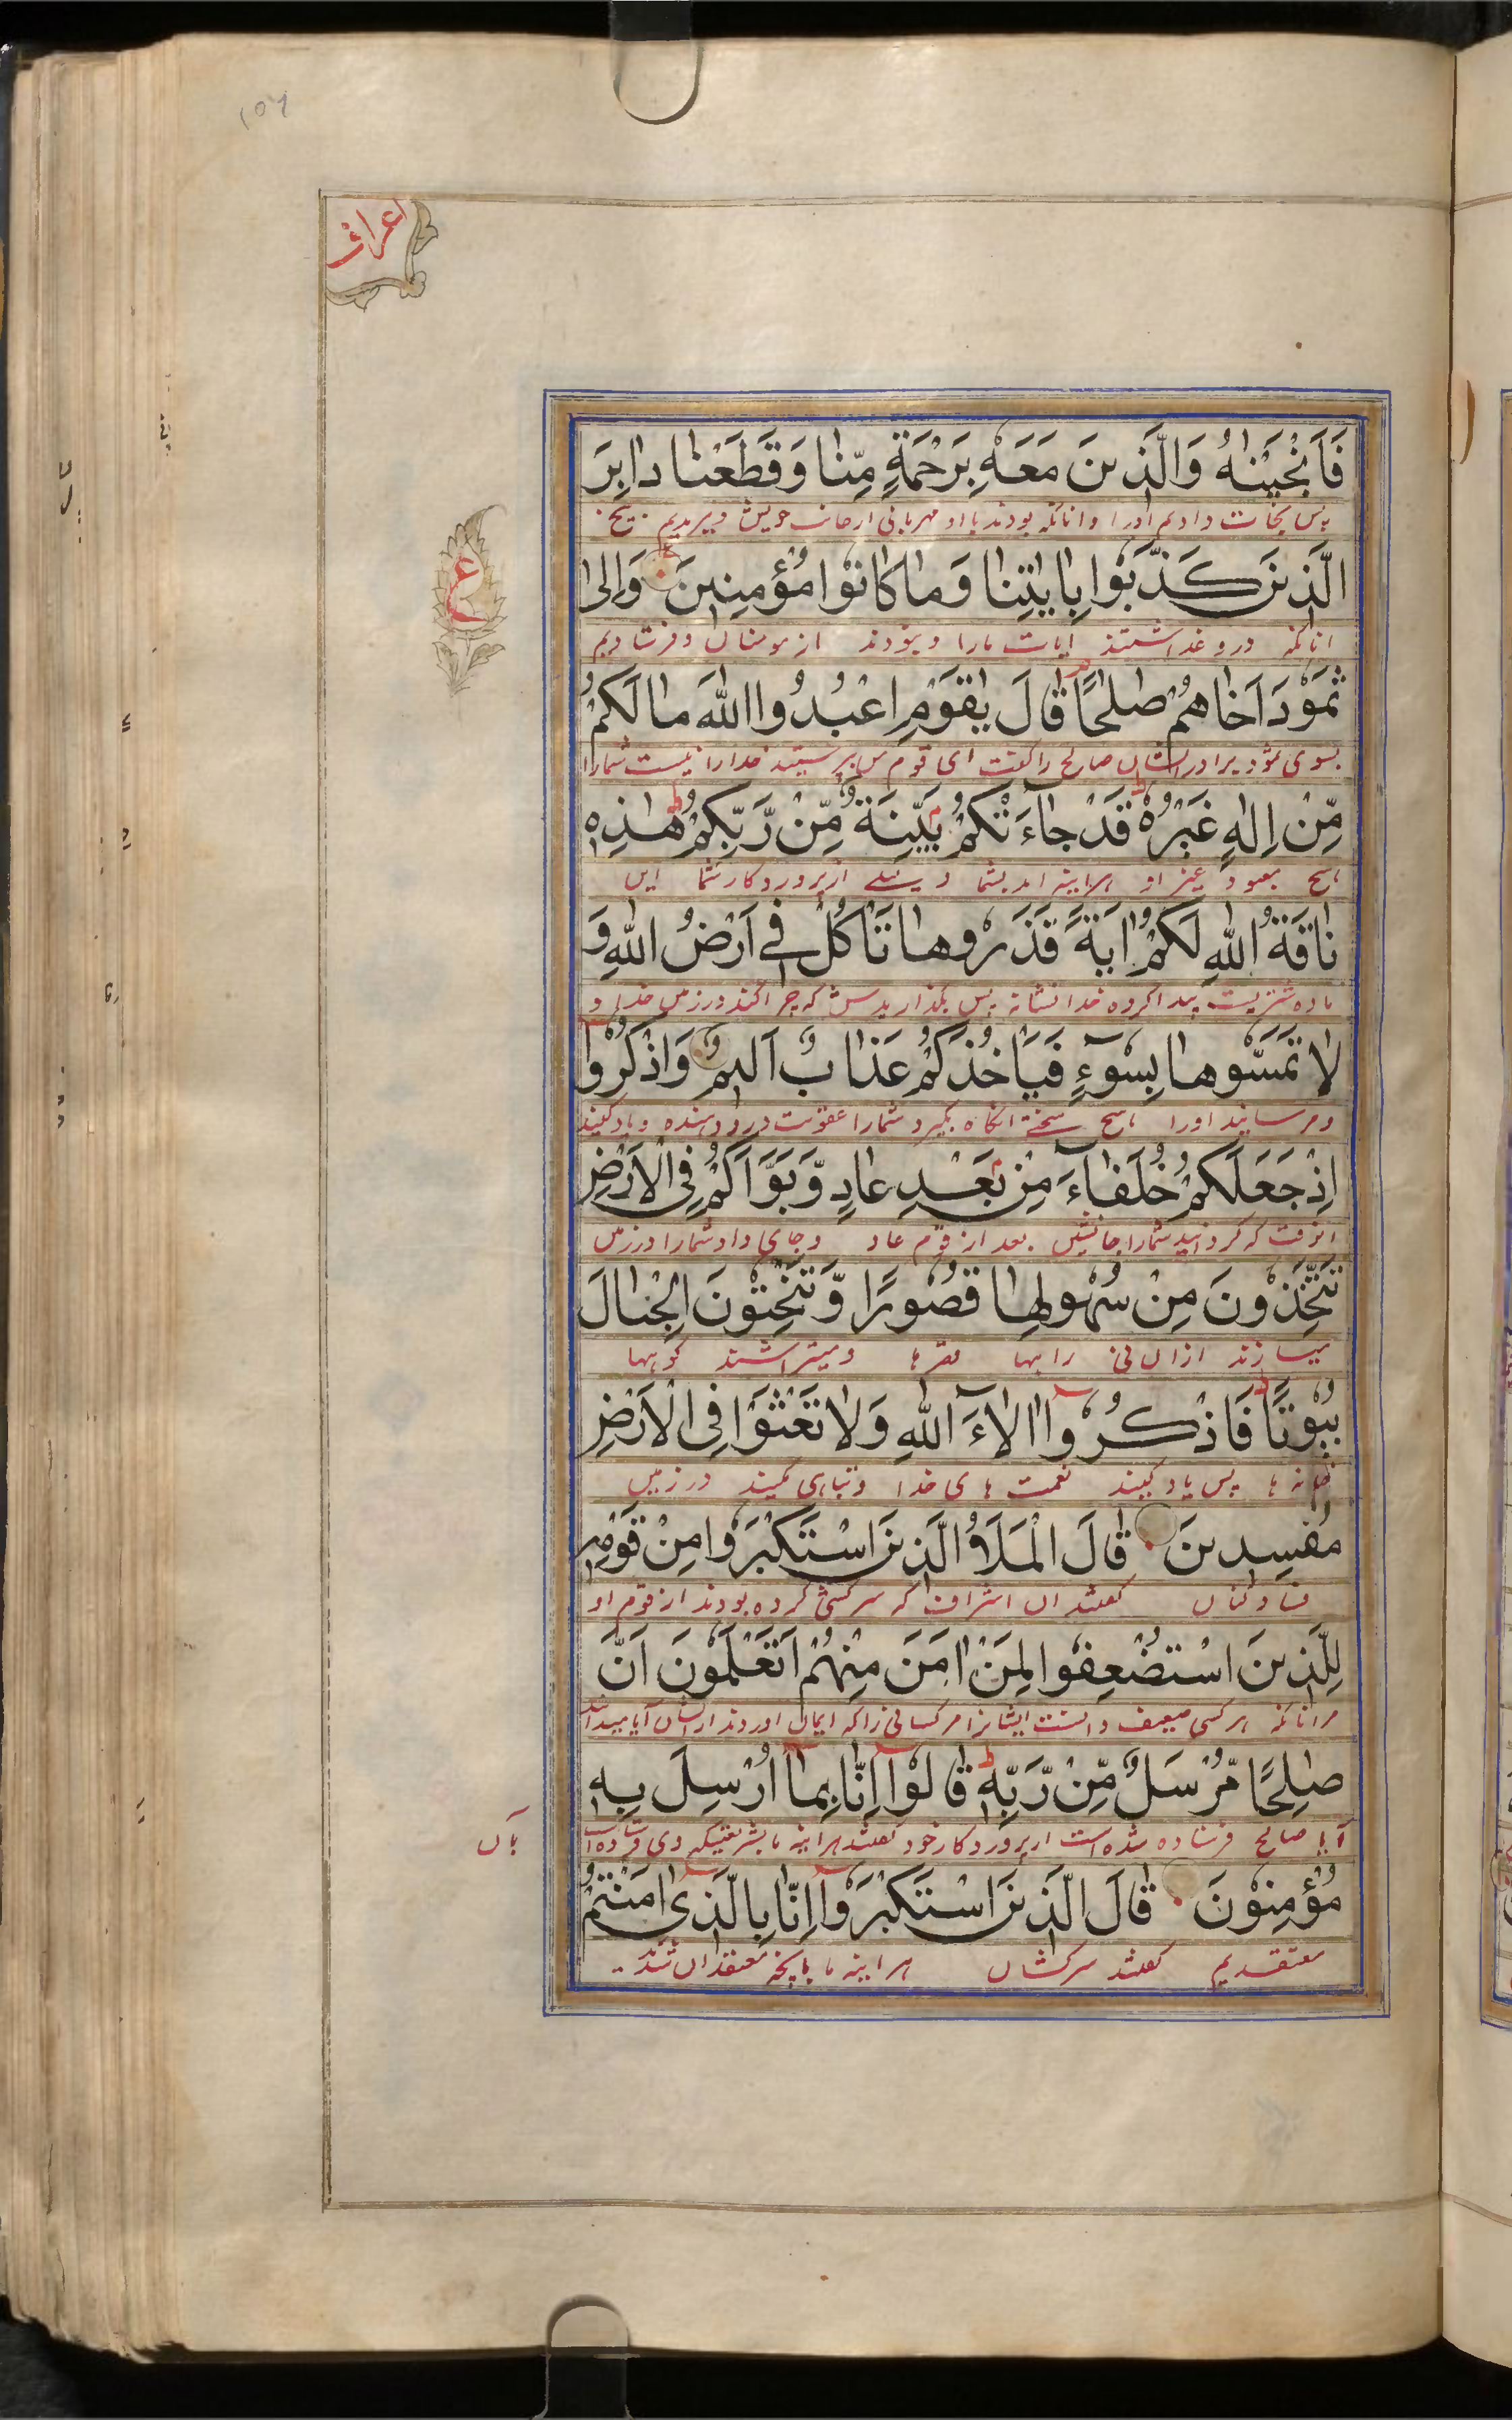 ۱۵۶
اعراف
فَاَنْجَیْنٰهُ وَالَّذِینَ مَعَهٗ بِرَحْمَةٍ مِّنَّا وَقَطَعْنَا دَابِرَ
پس نجات دادیم اورا و انانکه بودند با او مهربانی ازجانب خویش و ببریدیم بیخ
الَّذِینَ كَذَّبُوا بِاٰیٰتِنَا وَمَا كَانُوا مُؤْمِنِینَ وَاِلٰى
ع
انانکه دروغ داشتند ایات مارا و نبودند از مومنان و فرستادیم
ثَمُوْدَ اَخَاهُمْ صٰلِحًا قَالَ یٰقَوْمِ اعْبُدُوا اللّٰهَ مَا لَكُمْ
بسوی ثمود برادر ایشان صالح را گفت ای قوم من پرستید خدارا نیست شمارا
مِّنْ اِلٰهٍ غَیْرُهٗ قَدْ جَاۤءَتْكُمْ بَیِّنَةٌ مِّنْ رَّبِّكُمْ هٰذِهٖ
هیچ معبود غیر او هراینه امد بشما دلیلے از پروردکار شما این
نَاقَةُ اللّٰهِ لَكُمْ اٰیَةً فَذَرُوهَا تَاْكُلْ فِیْ اَرْضُ اللّٰهِ وَ
ماده شتریست پیدا کرده خدا نشانه پس بگذاریدش که چرا کند در زمین خدا و
لَا تَمَسُّوهَا بِسُوْۤءٍ فَیَاْخُذَكُمْ عَذَابٌ اَلِیمٌ وَاذْكُرُوْا
و مرسانید اورا هیچ سختے انکاه بگیرد شمارا عقوبت درد دهنده و یاد کنید
اِذْ جَعَلَكُمْ خُلَفَاۤءَ مِنْ بَعْدِ عَادٍ وَّبَوَّاَكُمْ فِی الْاَرْضِ
انوقت که کردانید شمارا جانشین بعد از قوم عاد و جای داد شمارا در زمین
تَتَّخِذُونَ مِنْ سُهُولِهَا قُصُورًا وَّتَنْحِتُونَ الْجِبَالَ
میسازند ازان نرم رابها قصر ها و میتراشند کوبها
بُیُوْتًا فَاذْكُرُوْا اٰلَاۤءَ اللّٰهِ وَلَا تَعْثَوْا فِی الْاَرْضِ
خانه ها پس یاد کنید نعمت های خدا و تباهی مکنید در زمین
مُفْسِدِینَ قَالَ الْمَلَاُ الَّذِینَ اسْتَكْبَرُوا مِنْ قَوْمِهٖ
فساد کنان گفتند ان اشراف که سرکشی کرده بودند از قوم او
لِلَّذِینَ اسْتُضْعِفُوا لِمَنْ اٰمَنَ مِنْهُمْ اَتَعْلَمُونَ اَنَّ
مر انانکه هر کسی ضعیف دانست ایشانرا مر کسانی را که ایمان اوردند از ایشان آیا میدانند
صٰلِحًا مُّرْسَلٌ مِّنْ رَّبِّهٖ قَالُوْا اِنَّا بِمَاۤ اُرْسِلَ بِهٖ
آیا صالح فرستاده شده است از پروردکار خود گفتند هراینه ما بشریعتیکه وی فرستاده است
بآن
مُؤْمِنُوْنَ قَالَ الَّذِینَ اسْتَكْبَرُوْا اِنَّا بِالَّذِیْ اٰمَنْتُمْ
معتقدیم گفتند سرکشان هراینه ما بانچه معتقدان شدند